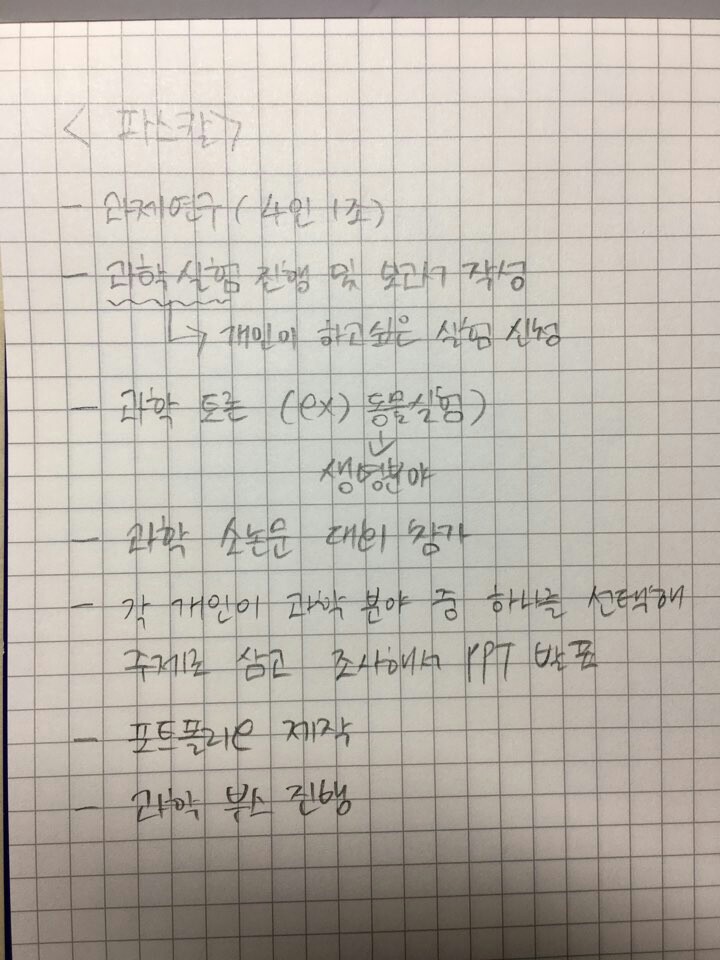 < 파스칼 >
- 과제연구 ( 4인 1조 )
- 과학 실험 진행 및 보고서 작성
↳ 개인이 하고싶은 실험 선정
- 과학 토론 (ex) 동물실험 )
↓
생명분야
- 과학 소논문 대회 참가
- 각 개인이 과학 분야 중 하나를 선택해
주제로 삼고 조사해서 PPT 발표
- 포트폴리오 제작
- 과학 부스 진행